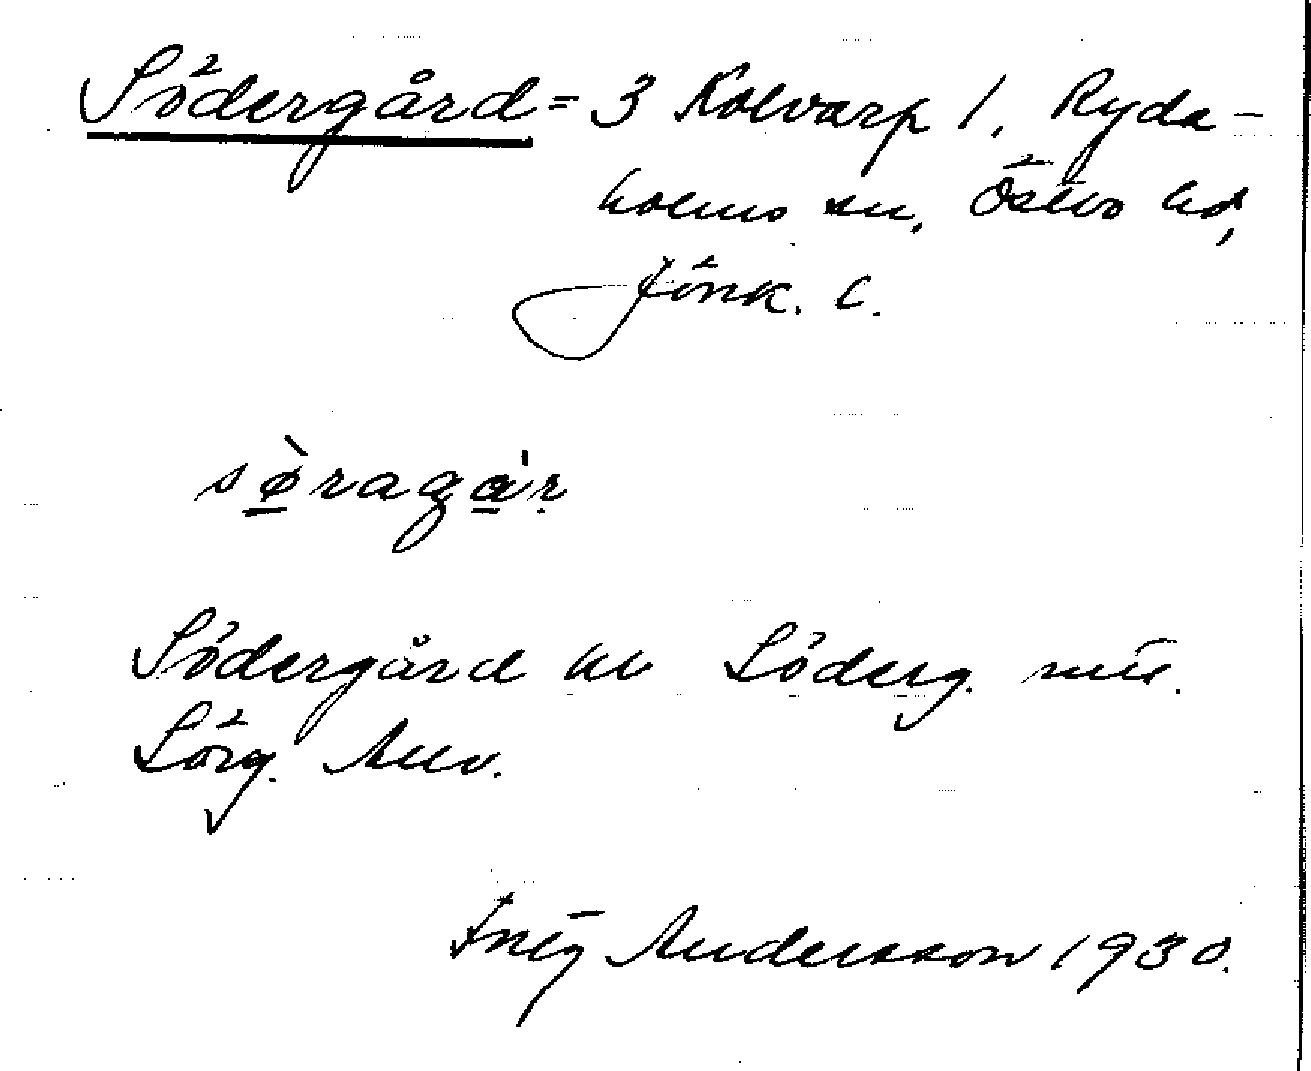 Södergård = 3 Kolvarp 1, Ryda-
holms sn, Östbo hd,
Jönk. l.
sø̀ragár
Södergård kv Söderg.
Sörg. Anv.
Ing Andersson 1930.